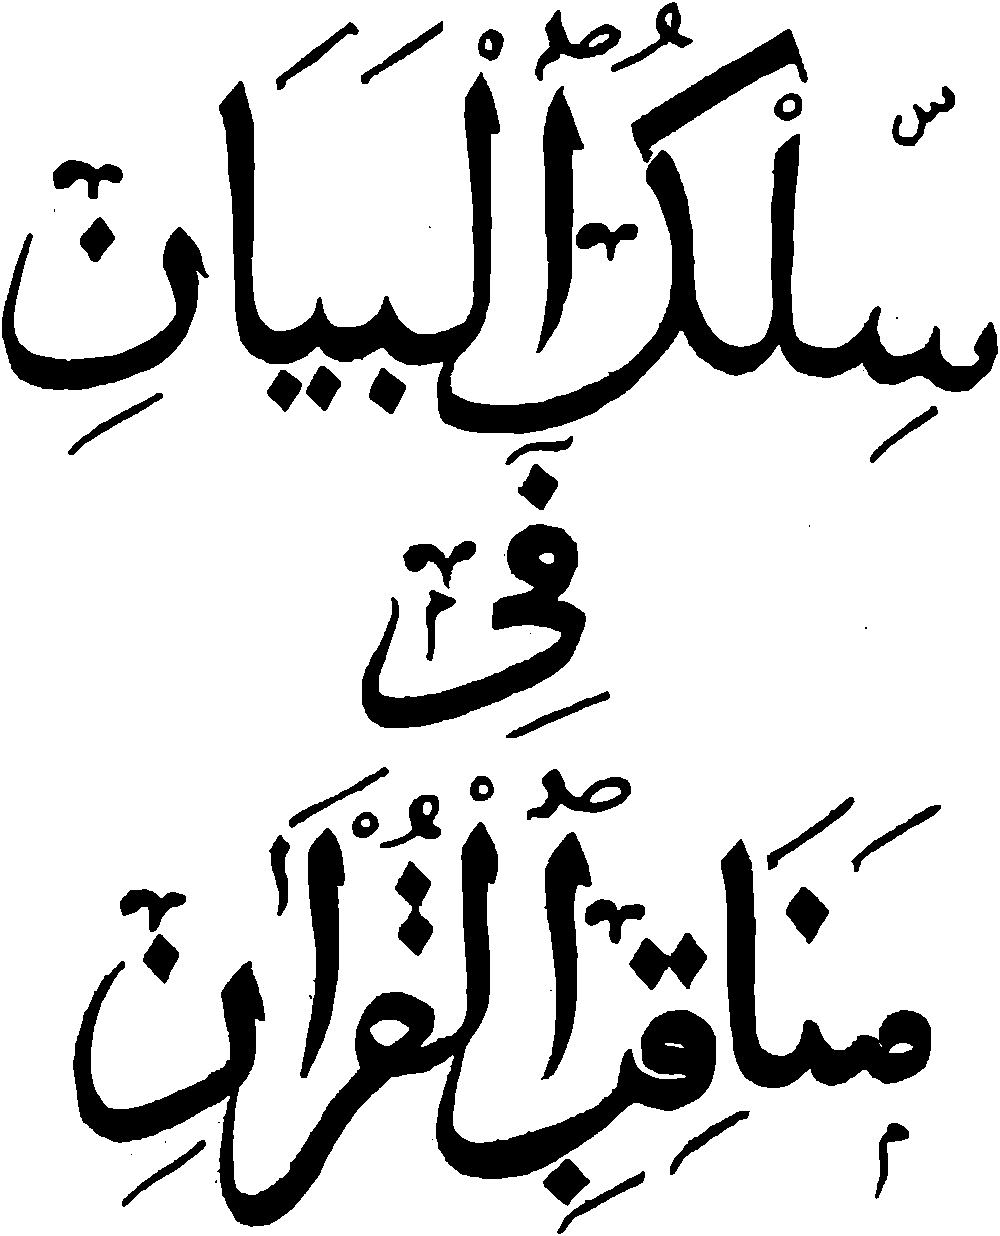 سِلْكُ ٱلْبَيَانِ
فِى
مَنَاقِبِ ٱلْقُرْاٰنِ